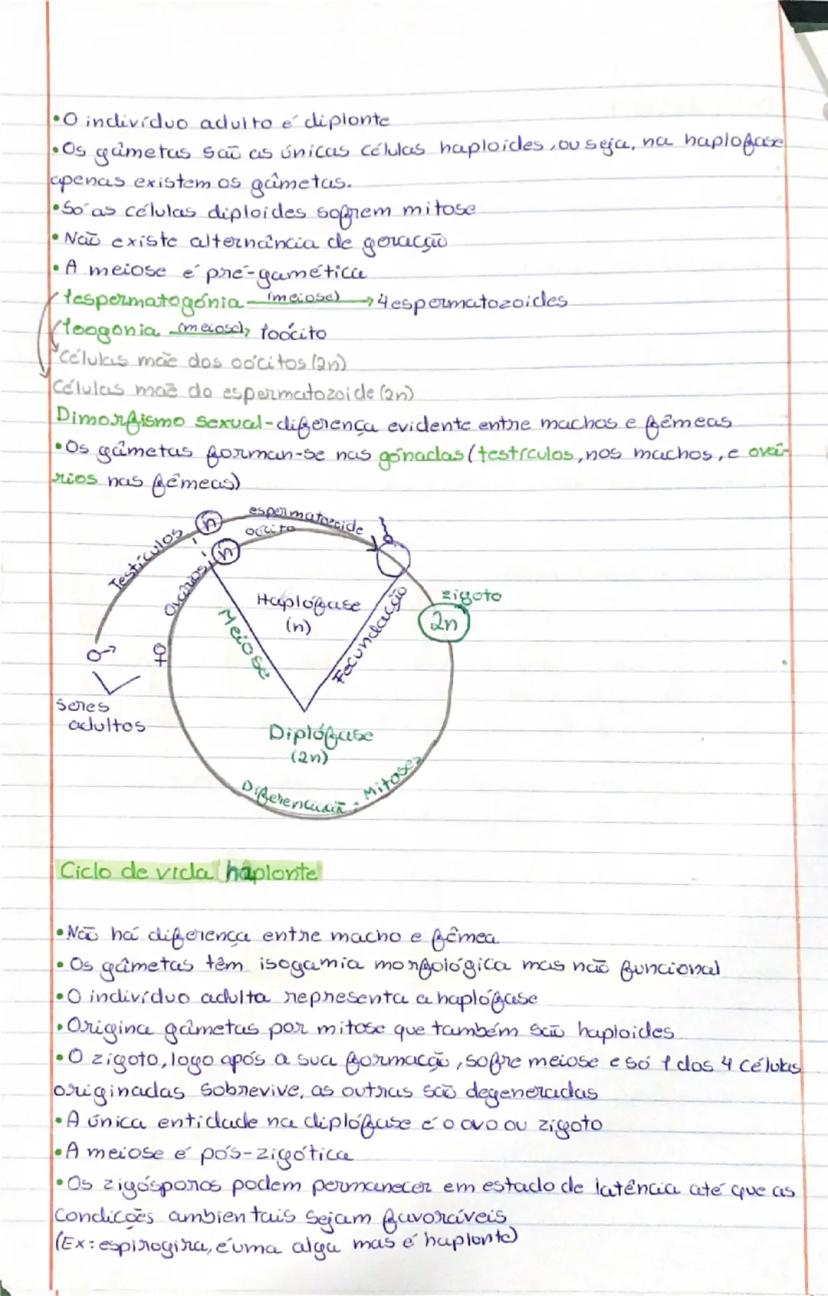 •O indivíduo adulto é diplonte
•Os gâmetas saõ as únicas células haploides, ou seja, na haplofase
apenas existem os gâmetas.
•Só as células diploides sofrem mitose
•Naõ existe alternância de geracção
•A meiose é pré-gamética
1espermatogónia (meiose) → 4espermatozoides
1oogonia (meiose) → 1oócito
Células maẽ dos oócitos (2n)
Células maẽ do espermatozoide (2n)
Dimorfismo sexual-diferença evidente entre machos e fêmeas
•Os gâmetas forman-se nas gónadas (testículos, nos machos, e ová-
rios nas fêmeas)
Testículos
n
espermatozoide
oócito
Ovários
n
Haplófase
(n)
Meiose
Fecundacção
zigoto
2n
♂ ♀
Seres
adultos
Diplófase
(2n)
Diferenciaçaõ - Mitoses
Ciclo de vida haplonte
•Naõ há diferença entre macho e fêmea
•Os gâmetas têm isogamia morfológica mas naõ funcional
•O indivíduo adulta representa a haplófase
•Origina gâmetas por mitose que também saõ haploides
•O zigoto, logo após a sua formacção, sofre meiose e só 1 dos 4 células
originadas sobrevive, as outras saõ degeneradas
•A única entidade na diplófase é o ovo ou zigoto
•A meiose é pós-zigótica
•Os zigósporos podem permanecer em estado de latência até que as
condicções ambientais sejam favoráveis
(Ex: espirogira, é uma alga mas é haplonte)